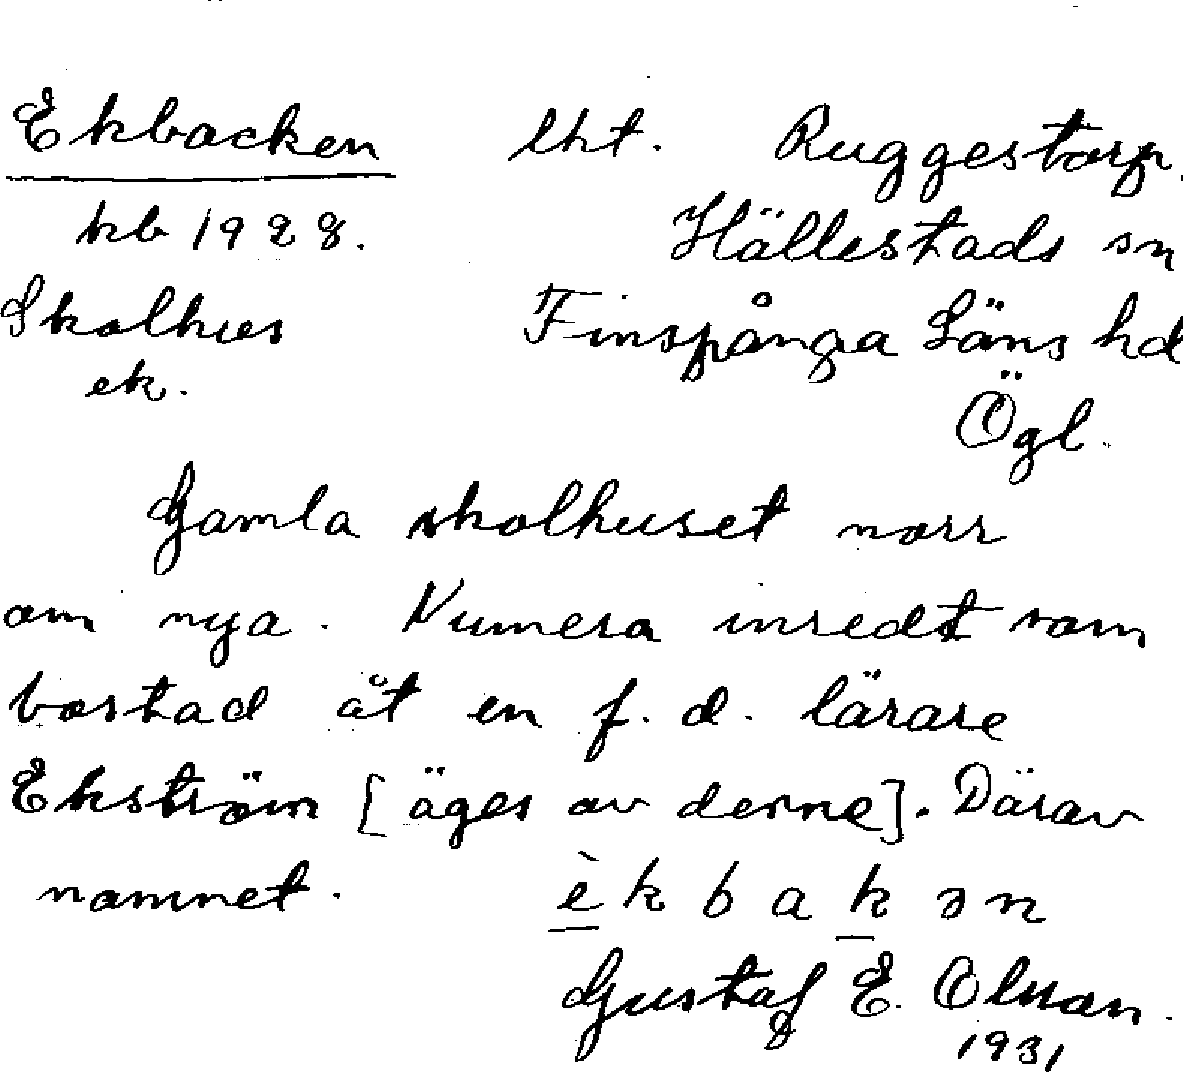 Ekbacken lht. Ruggestorp.
kb 1928. Hällestads sn
Skolhus Finspånga Läns hd
ek. Ögl.
Gamla skolhuset norr
om nya. Numera inredt som
bostad åt en f. d. lärare
Ekström [äges av denne]. Därav
namnet. èkbakən
Gustaf E. Olsson.
1931